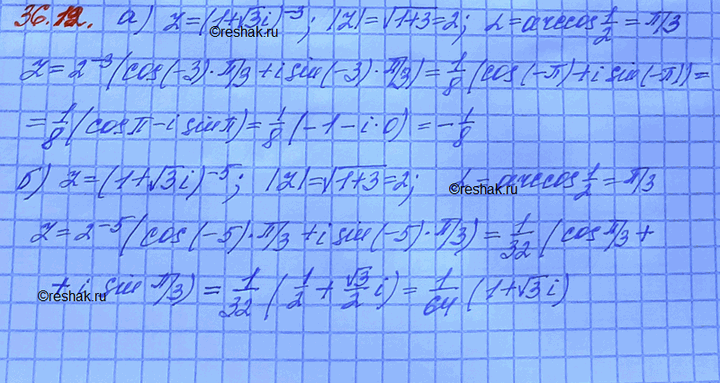 36.12. а) z=(1+√3i)⁻³; |z|=√1+3=2; α=arccos 1/2=π/3
©reshak.ru
z=2⁻³(cos(-3)·π/3+i sin(-3)·π/3)=1/8(cos(-π)+i sin(-π))=
=1/8(cosπ-i sinπ)=1/8(-1-i·0)=-1/8
б) z=(1+√3i)⁻⁵; |z|=√1+3=2; α=arccos 1/2=π/3
©reshak.ru
z=2⁻⁵(cos(-5)·π/3+i sin(-5)·π/3)=1/32(cos π/3+
+i sin π/3)=1/32(1/2+√3/2 i)=1/64(1+√3i)
©reshak.ru